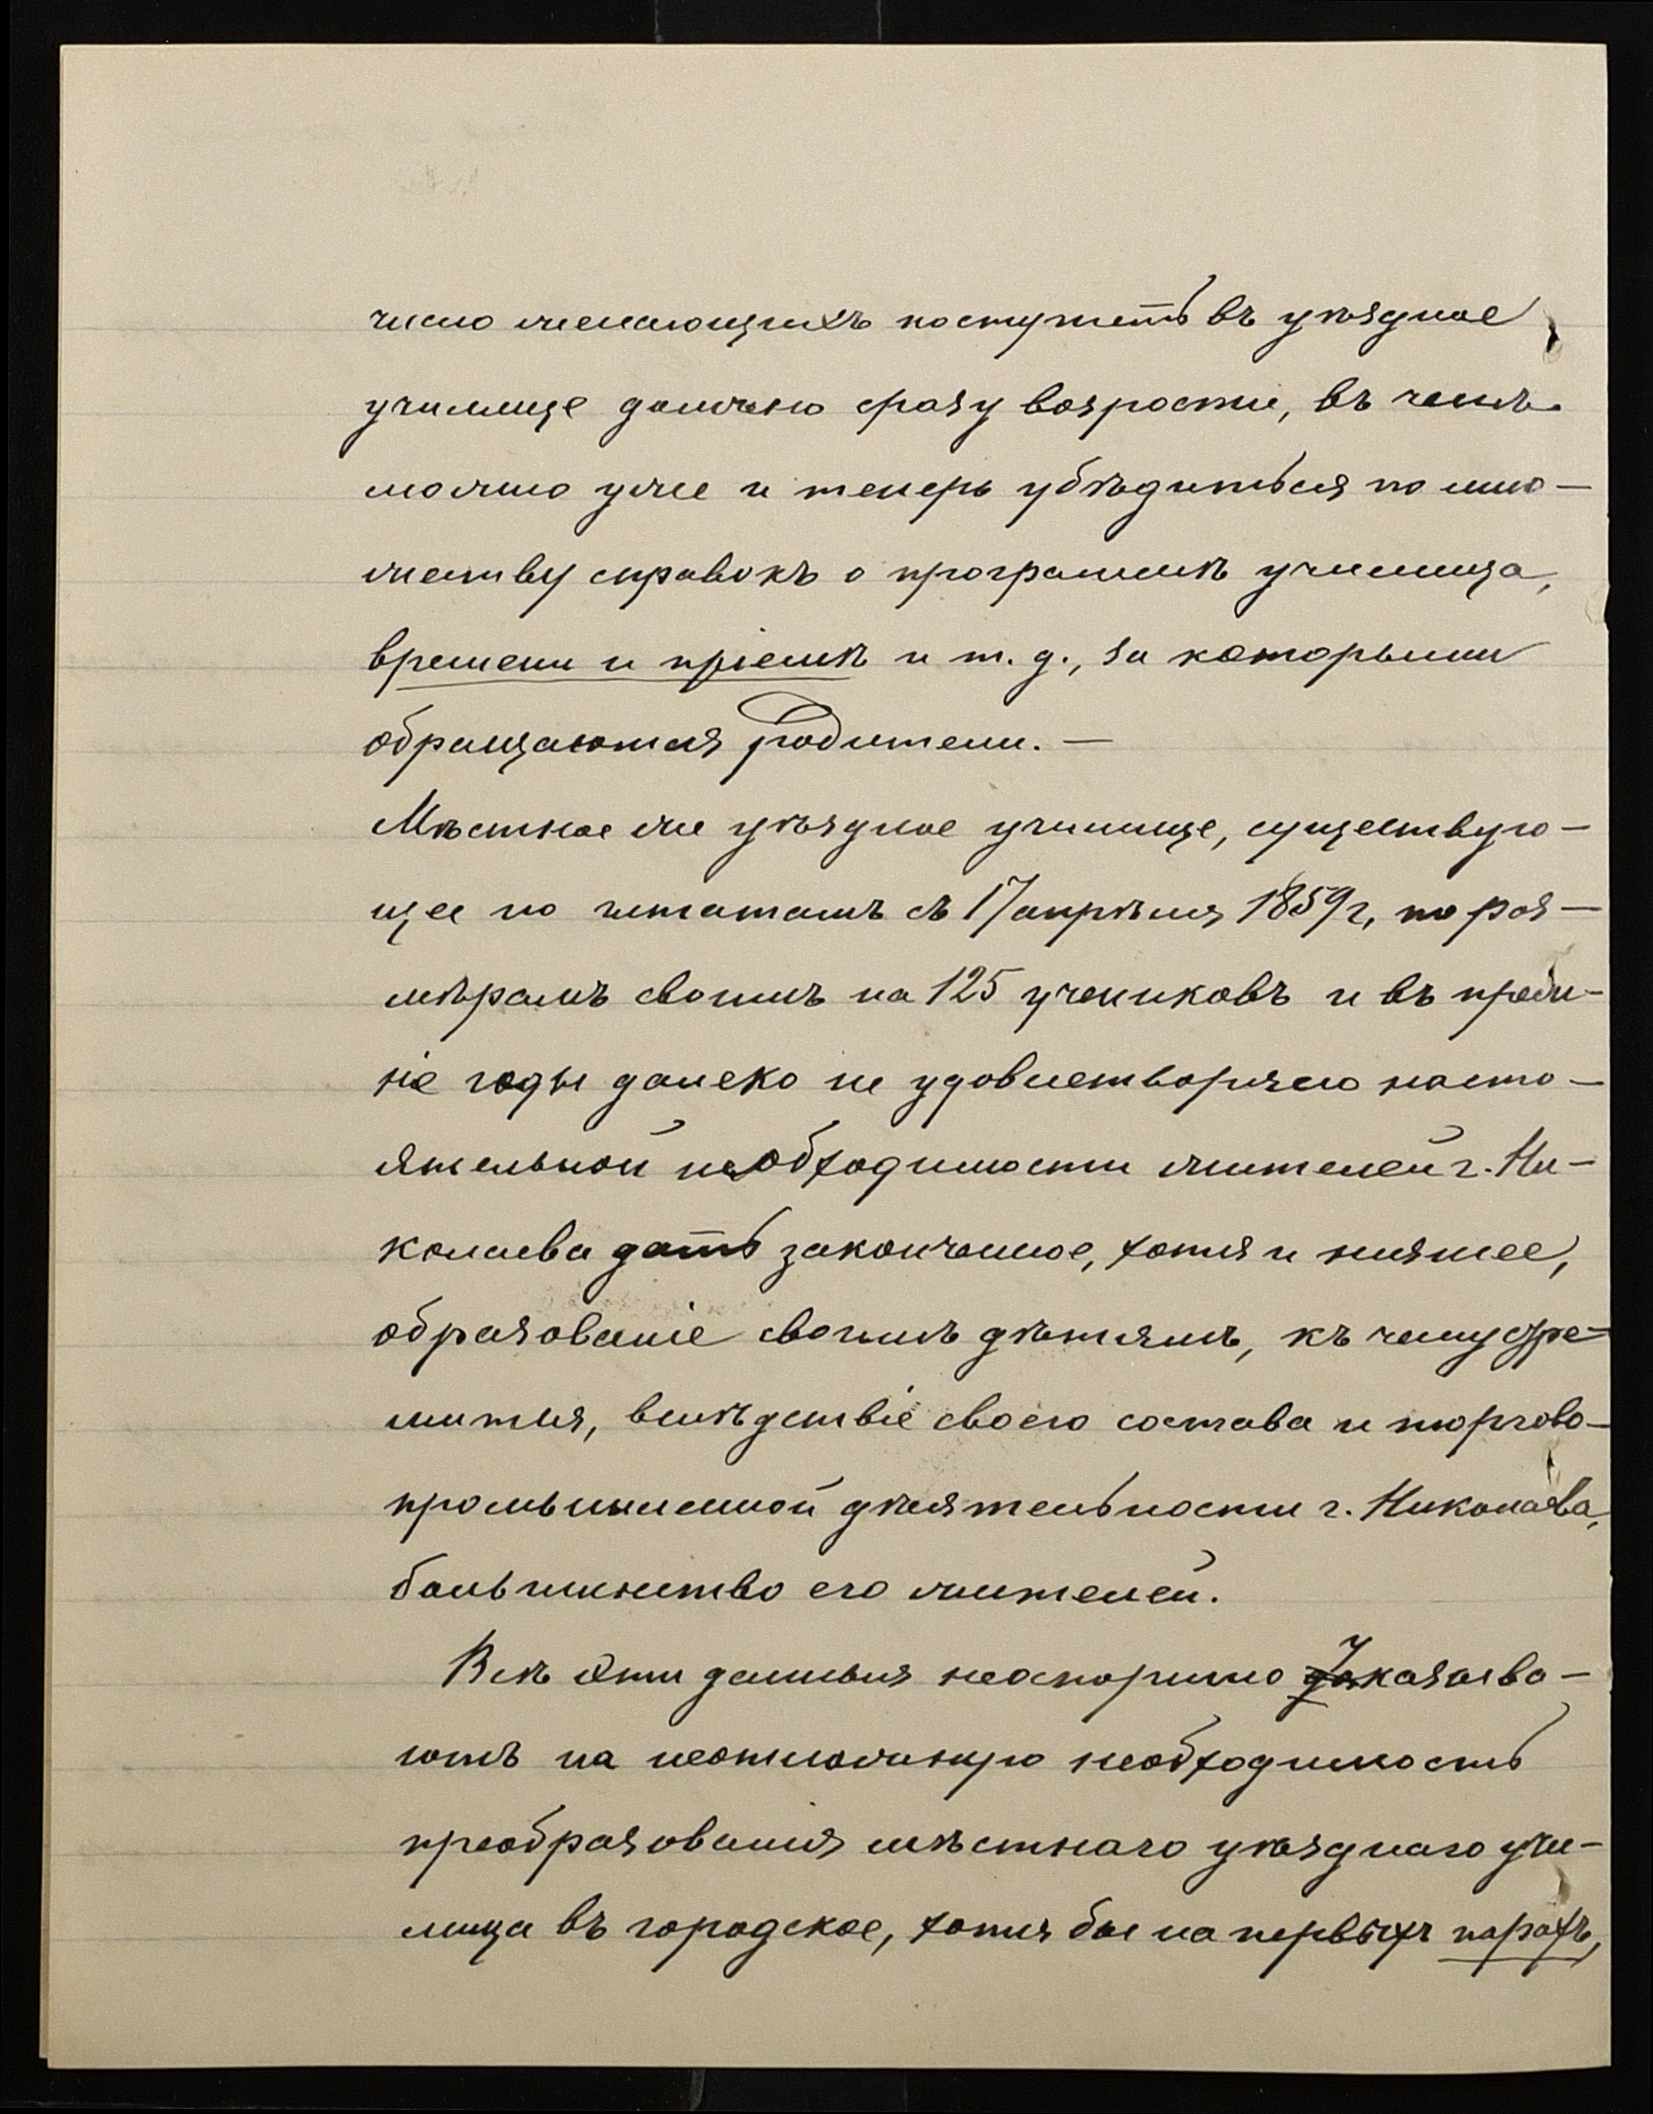 число желающихъ поступить въ уѣздное
училище должно сразу возрости, въ чемъ
можно уже и теперь убѣдиться по мно-
жеству справокъ о программѣ училища,
времени и пріемѣ и т. д., за которыми
обращаются родители. —
Мѣстное же уѣздное училище, существую-
щее по штатамъ съ 17 апрѣля 1859 г, по раз-
мѣрамъ своимъ на 125 учениковъ и въ преды-
ніе годы далеко не удовлетворяло насто-
ятельной необходимости жителей г. Ни-
колаева дать законченное, хотя и низшее,
образованіе своимъ дѣтямъ, къ чему стре-
мится, вслѣдствіе своего состава и торгово-
промышленной дѣятельности г. Николаева,
большинство его жителей.
Всѣ эти данныя неоспоримо указыва-
ютъ на неотложную необходимость
преобразованія мѣстнаго уѣзднаго учи-
лища въ городское, хотя бы на первыхъ порахъ,